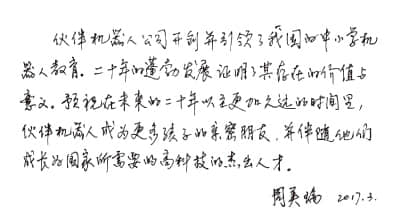 伙伴机器人公司开创并引领了我国的中小学机
器人教育。二十年的蓬勃发展证明了其存在的价值与
意义。预祝在未来的二十年以至更加久远的时间里,
伙伴机器人成为更多孩子的亲密朋友,并伴随他们
成长为国家所需要的高科技的杰出人才。
周美瑞 2017.3.